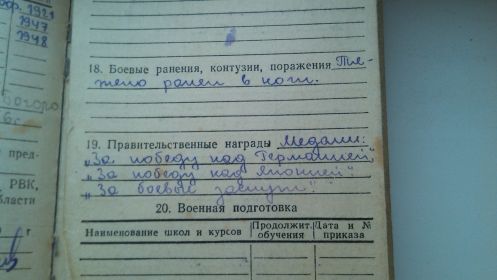 1921
1947
1948
18. Боевые ранения, контузии, поражения Тя-
жело ранен в ноги.
19. Правительственные награды Медали:
„За победу над Германией",
„За победу над Японией"
„За боевые заслуги".
пред-
РВК,
бласти
г
20. Военная подготовка
Наименование школ и курсов
Продолжит. обучения
Дата и № приказа